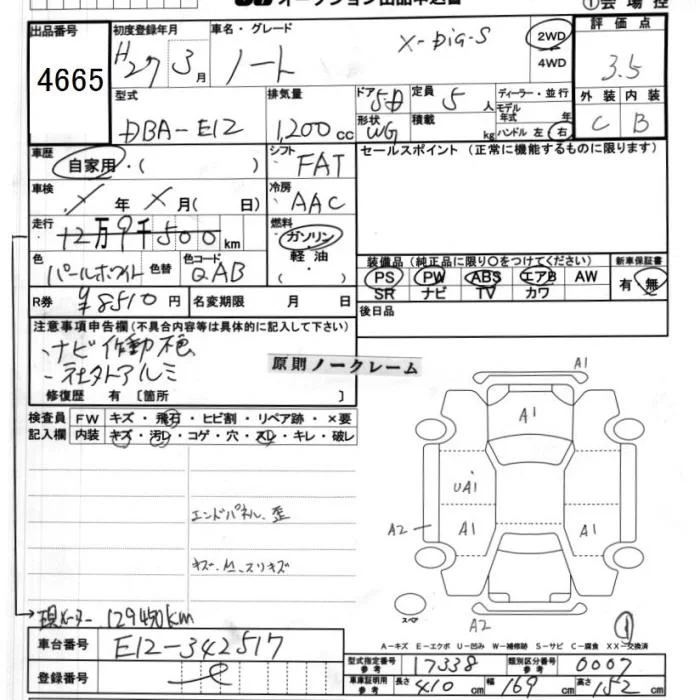 オークション出品申込書
①会場控
出品番号 初度登録年月 車名・グレード 2WD 評価点
4665 H27 3月 ノート X-DIG-S 4WD 3.5
型式 排気量 ドア 5D 定員 5人 ディーラー・並行 外装 内装
モデル年式 年
DBA-E12 1,200cc 形状 WG 積載 kg ハンドル 左 右 C B
車歴 自家用・( ) シフト FAT セールスポイント(正常に機能するものに限ります)
車検 X年X月( 日) 冷房 AAC
走行 12万9千500km 燃料 ガソリン 軽油
装備品(純正品に限り○をつけてください) 新車保証書
色 パールホワイト 色替 色コード QAB
PS PW ABS エアB AW 有・無
SR ナビ TV カワ
R券 ¥8510円 名変期限 月 日 後日品
注意事項申告欄(不具合内容等は具体的に記入して下さい)
・ナビ作動
・社外アルミ
原則ノークレーム
修復歴 有 [箇所 ]
検査員 FW キズ・飛石・ヒビ割・リペア跡・×要
記入欄 内装 キズ・汚レ・コゲ・穴・スレ・キレ・破レ
A1
A1
UA1
A1 A1
A2
エンドパネル、歪
キズ、凹、スリキズ
スペア
A2
①
現メーター 129450km
A-キズ E-エクボ U-凹み W-補修跡 S-サビ C-腐食 XX-交換済
車台番号 E12-342517
型式指定番号 参考 17338 類別区分番号 参考 0007
登録番号
車庫証明用 参考 長さ 410cm 幅 169cm 高さ 152cm